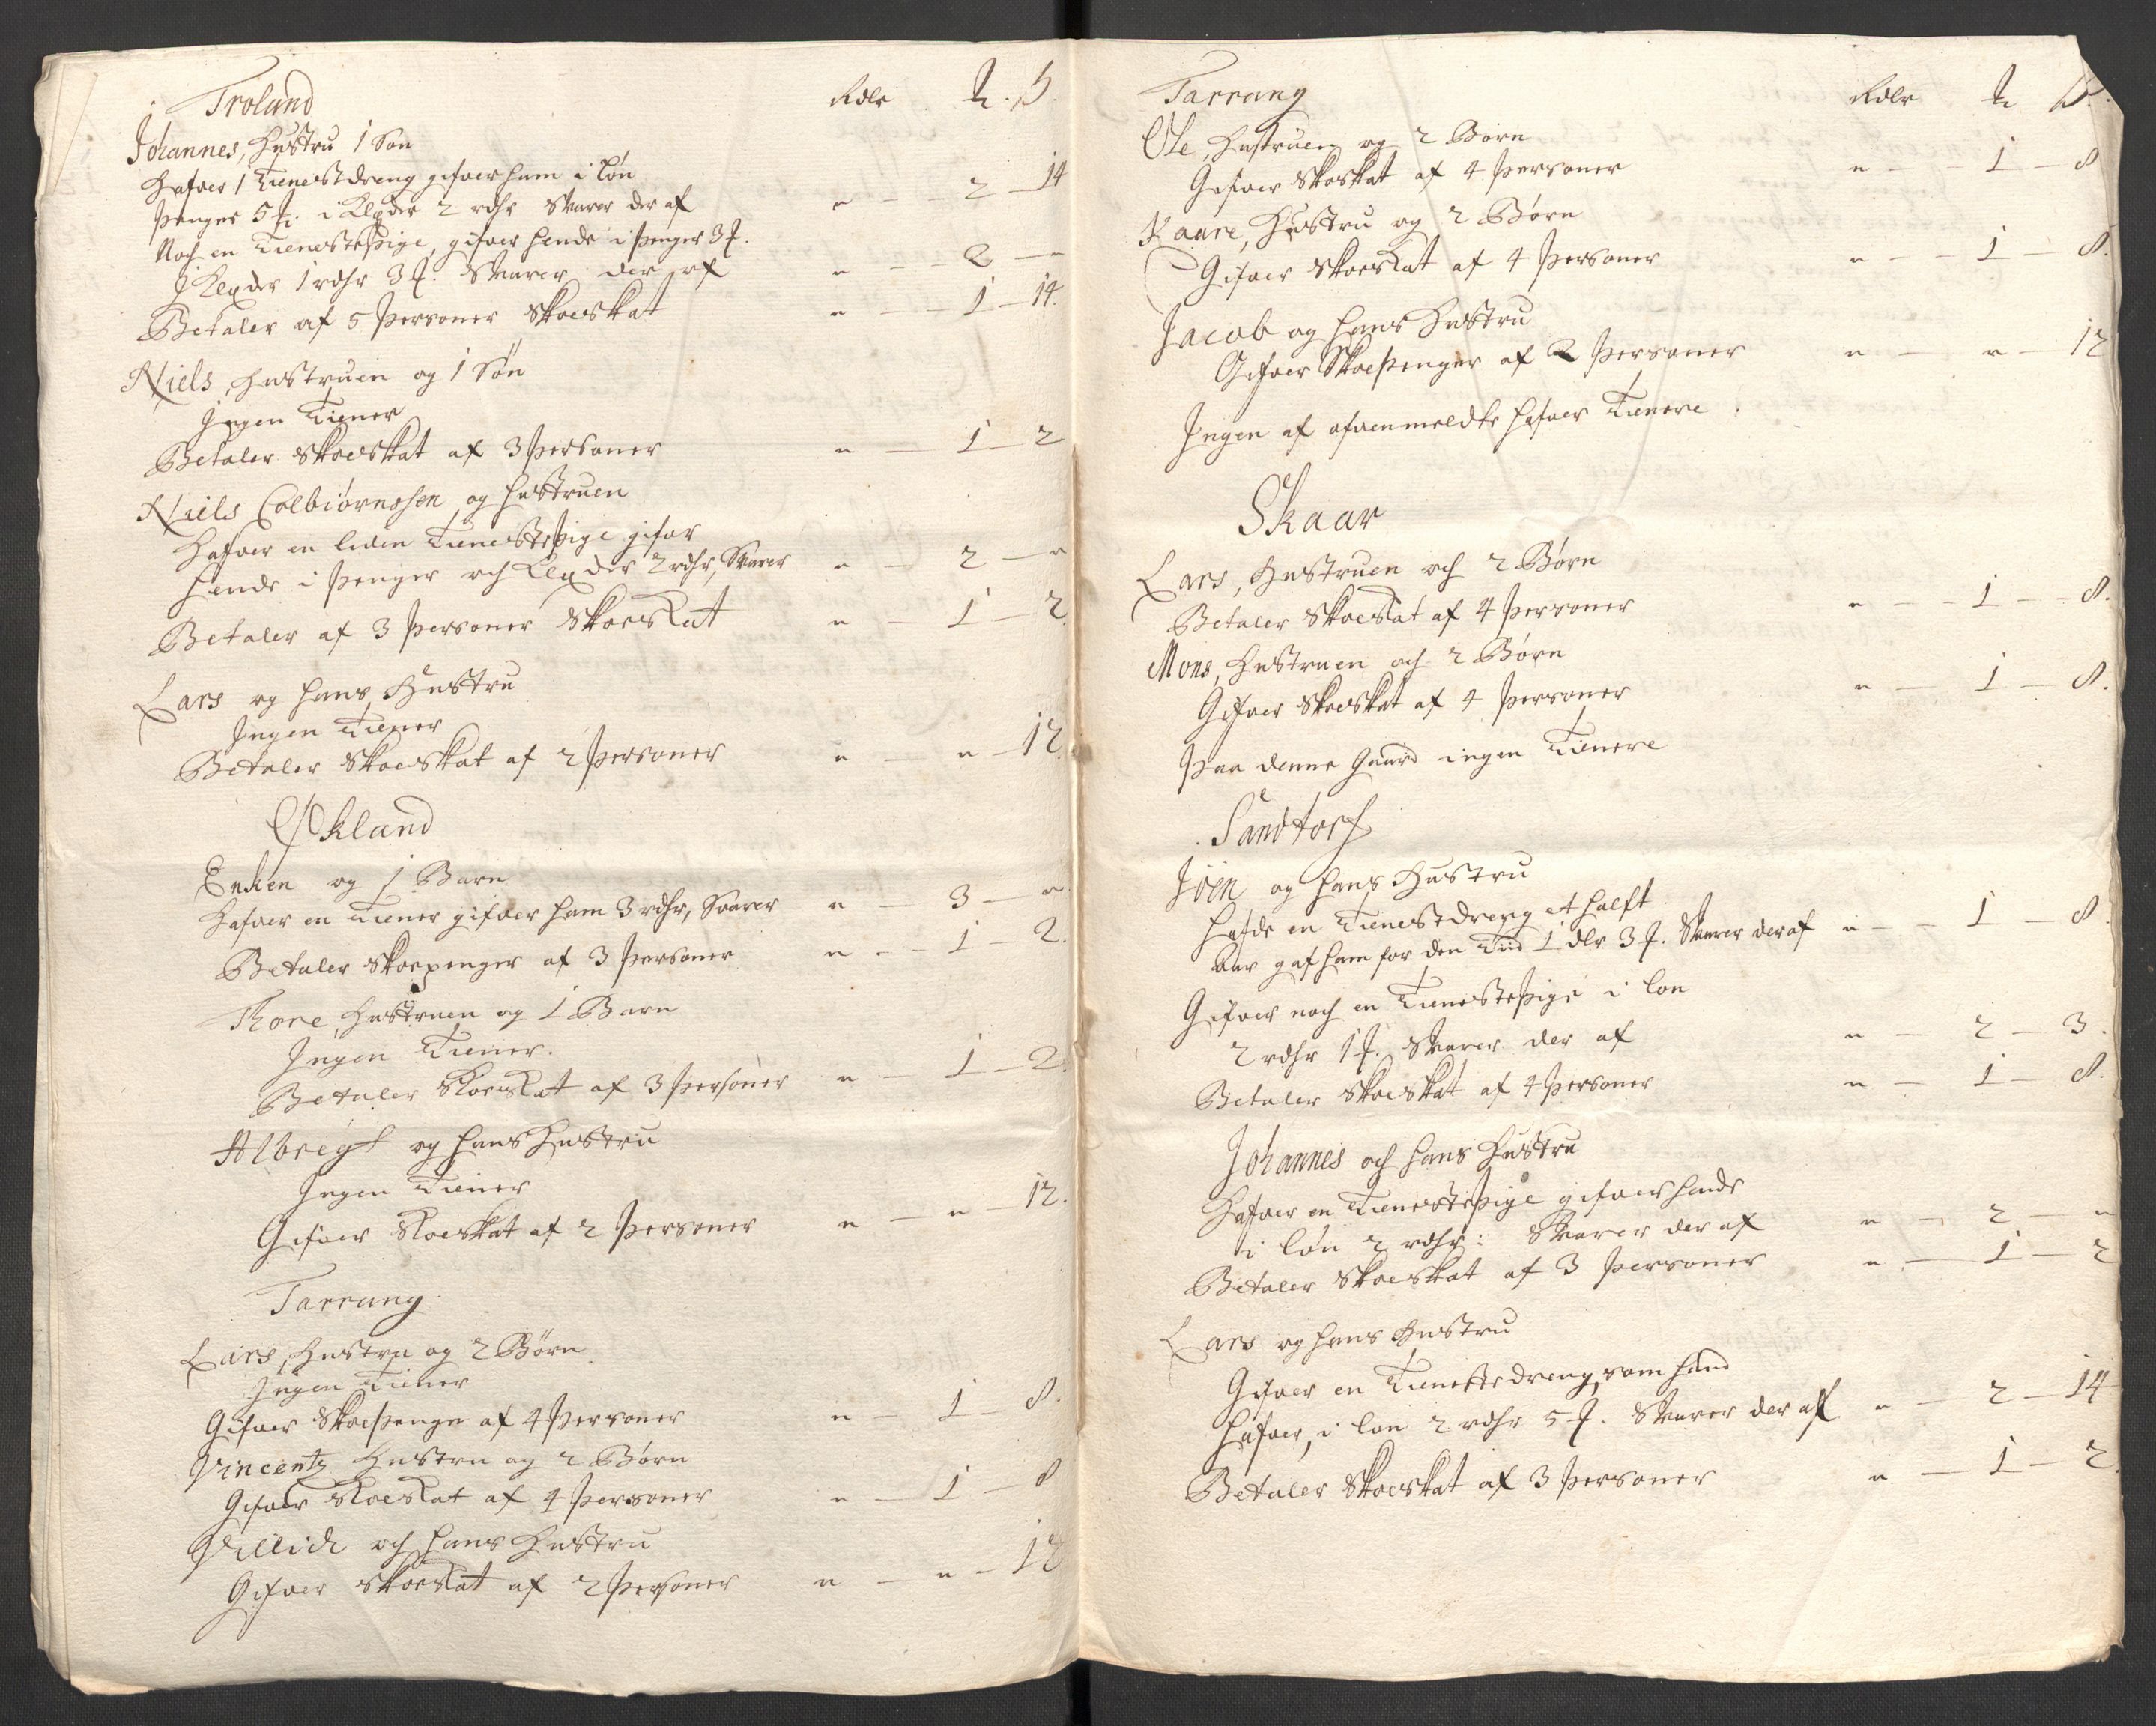 Troland
Rdlr ℔ ß
Johannes, Hustru 1 Søn
Hafver 1 Tienestdreng gifver ham i løn
penger 5 ℔. i Klæder 2 rdhr Svarer der af " — 2 — 14
Noch en Tienestepige, gifver hende i penger 3 ℔.
J Klæder 1 rdhr 3 ℔. Svarer der af " — 2 — "
Betaler af 5 Personer Skoeskat " — 1 — 14.
Niels, Hustruen og 1 Søn
Ingen Tiener
Betaler Skoeskat af 3 Personer " — 1 — 2
Niels Colbiørnssen og Hustruen
Hafver en liden Tienestepige gifver
hende i Penger och Klæder 2 rdhr, Svarer " — 2 — "
Betaler af 3 Personer Skoeskat " — 1 — 2.
Lars og hans Hustru
Ingen Tiener
Betaler Skoeskat af 2 Personer " — " — 12.
Økland
Enken og 1 Barn
Hafver en Tiener gifver ham 3 rdhr, Svarer " — 3 — "
Betaler Skoepenger af 3 Personer " — 1 2.
Thore, Hustruen og 1 Barn
Ingen Tiener.
Betaler Skoeskat af 3 Personer " — 1 — 2.
Albregt og hans Hustru
Ingen Tiener
Gifver Skoeskat af 2 Personer " — " — 12.
Tarrang
Lars, Hustru og 2 Børn
Ingen Tiener
Gifver Skoepenge af 4 Personer " — 1 — 8.
Vincentz Hustru og 2 Børn
Gifver Skoeskat af 4 Personer " — 1 — 8
Villich och hans Hustru
Gifver Skoeskat af 2 Personer " — " — 12
Tarrang
Rdlr ℔ ß.
Ole, Hustruen og 2 Børn
Gifver Skoskat af 4 Personer " — 1 — 8
Kaare, Hustru og 2 Børn
Gifver Skoeskat af 4 Personer " — 1 — 8.
Jacob og hans Hustru
Gifver Skoepenger af 2 Personer " — " — 12
Ingen af ofvenmeldte hafver Tienere.
Skaar
Lars, Hustruen och 2 Børn
Betaler Skoeskat af 4 Personer " — 1 — 8.
Mons, Hustruen och 2 Børn
Gifver Skoeskat af 4 Personer " — 1 — 8.
Paa denne Gaard ingen Tienere
Sandtorf
Joen og hans Hustru
hafde en Tienestdreng et halft
aar gaf ham for den Tiid 1 dlr 3 ℔. Svarer der af " — 1 — 8.
Gifver noch en Tienestepige i løn
2 rdhr 1 ℔. Svarer der af " — 2 — 3.
Betaler Skoeskat af 4 Personer " — 1 — 8.
Johannes och hans Hustru
Hafver en Tienestepige gifver hende
i løn 2 rdhr: Svarer der af " — 2 — "
Betaler Skoeskat af 3 Personer " — 1 — 2
Lars og hans Hustru
Gifver en Tienestedreng, som hand
hafver, i løn 2 rdhr 5 ℔. Svarer der af " — 2 — 14
Betaler Skoeskat af 3 Personer " — 1 — 2.